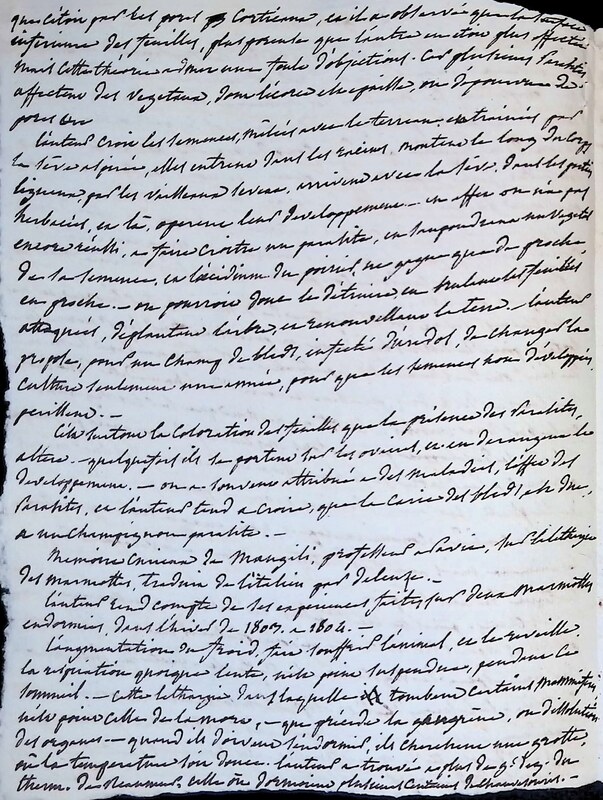 que c'étoit par les pores corticaux, et il a observé que la surface
inférieure des feuilles, plus poreuse que l'autre en étoit plus affectée
mais cette théorie admet une foule d'objections. Car plusieurs parasites
affectent des végétaux, dont l'écorce est épaisse, ou dépourvue de
pores
l'auteur croit les semences, mêlées avec le terreau, entrainées par
la sève aspirée, elles entrent dans les racines, montent le long du corps
ligneux, par les vaisseaux séveux, arrivent avec la sève, dans les parties
herbacées, et là, opèrent leur developpement — en effet on n'a pas
encore réussi, a faire croitre un parasite, en saupoudrant un vegetal
de sa semence, et l'œcidium du poirier, ne gagne que de proche
en proche. — on pourroit donc le détruire en brulant les feuilles
attaquées, déplantant l'arbre, et renouvellant la terre — l'auteur
propose, pour un champ de bled, infecté d'uredo, de changer la
culture seulement une année, pour que les semences non développées
perissent. —
C'est surtout la coloration des feuilles que la présence des parasites,
altère. — quelquefois ils se portent sur les ovaires, et en derangent le
developpement. — on a souvent attribué a des maladies, l'effet des
parasites, et l'auteur tend a croire, que la carie des bleds est due,
a un champignon parasite. —
Mémoire de Mangili, professeur a Pavie, sur la léthargie
des marmottes, traduit de l'italien par Deleuze. —
l'auteur rend compte de ses expériences faites, sur deux marmottes
endormies, dans l'hiver de 1803 a 1804. —
l'augmentation du froid, fait souffrir l'animal, et le réveille.
la respiration quoique lente, n'est point suspendue, pendant ce
sommeil. — cette lethargie dans laquelle tombent certains mammifères,
n'est point celle de la mort, — que précède la gangrène, ou dissolution
des organes — quand ils doivent s'endormir, ils cherchent une grotte,
où la température soit douce. l'auteur a trouvé a plus de 9. deg. du
therm. de Reaumur, celle où dormoient plusieurs centaines de chauvesouris. —